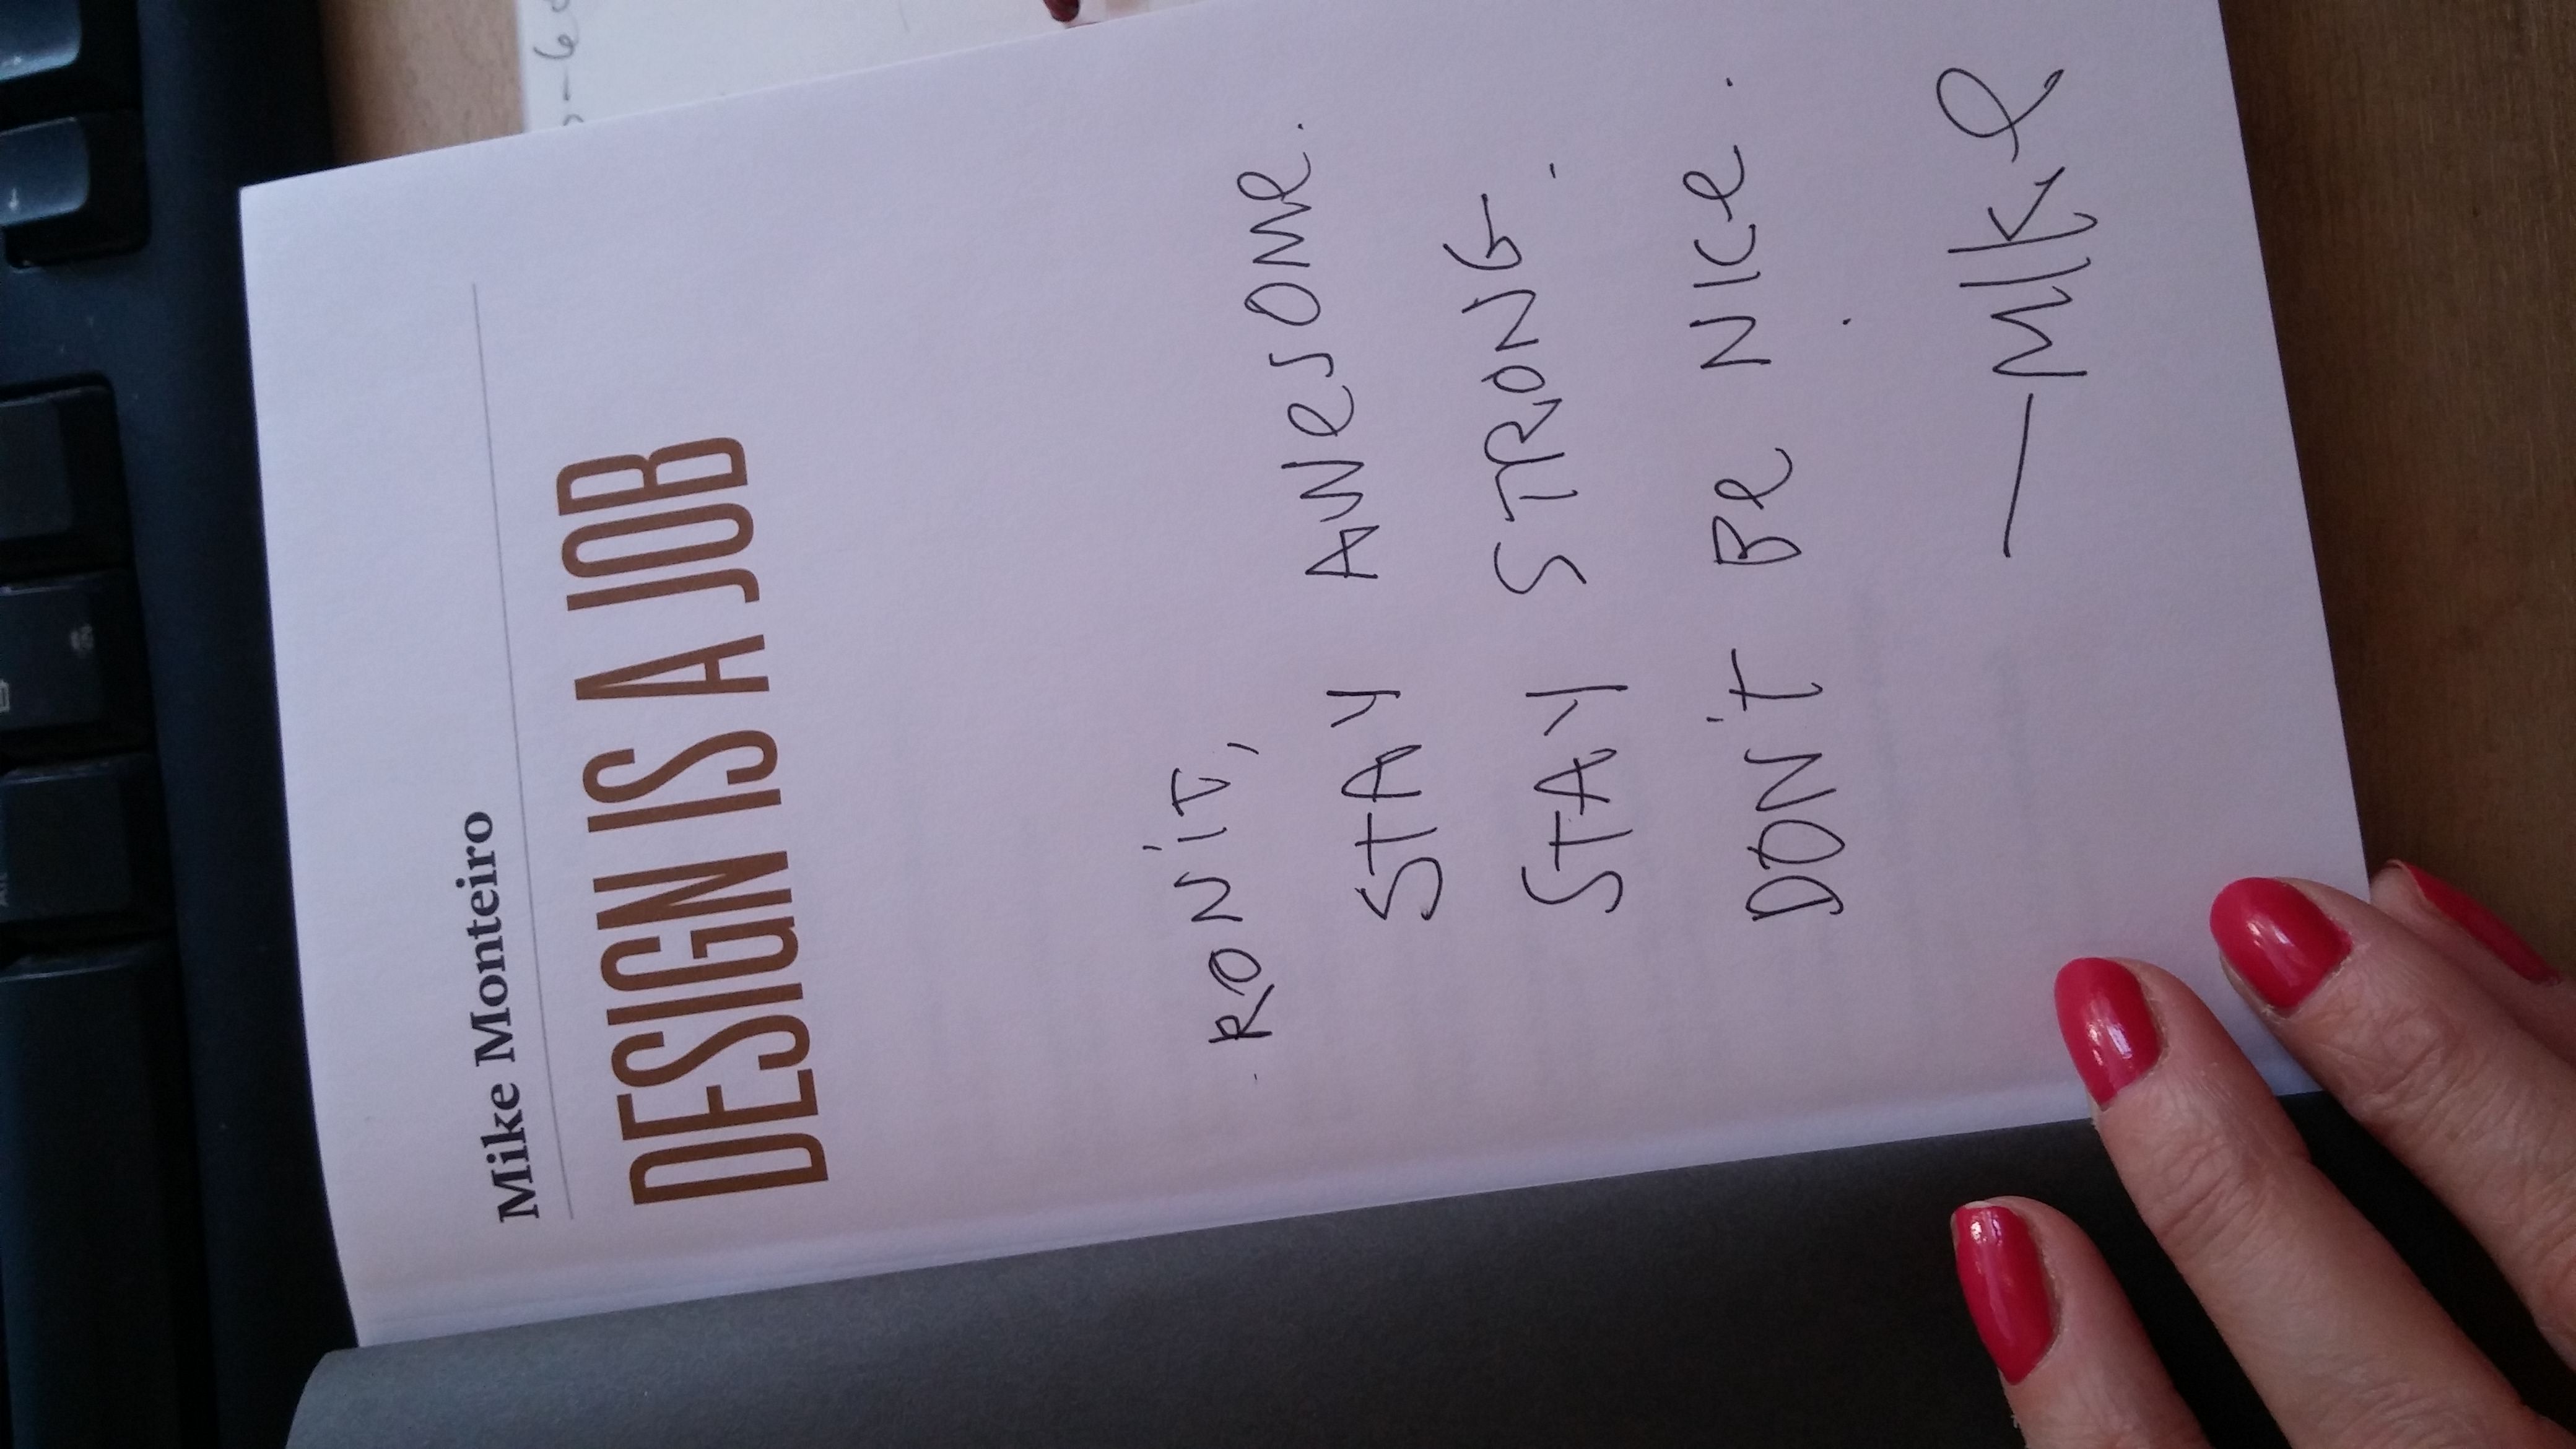 Mike Monteiro
DESIGN IS A JOB
RONiT,
STAY AWeSOMe.
STAY STRONG.
DON'T Be NICe.
—MIKe